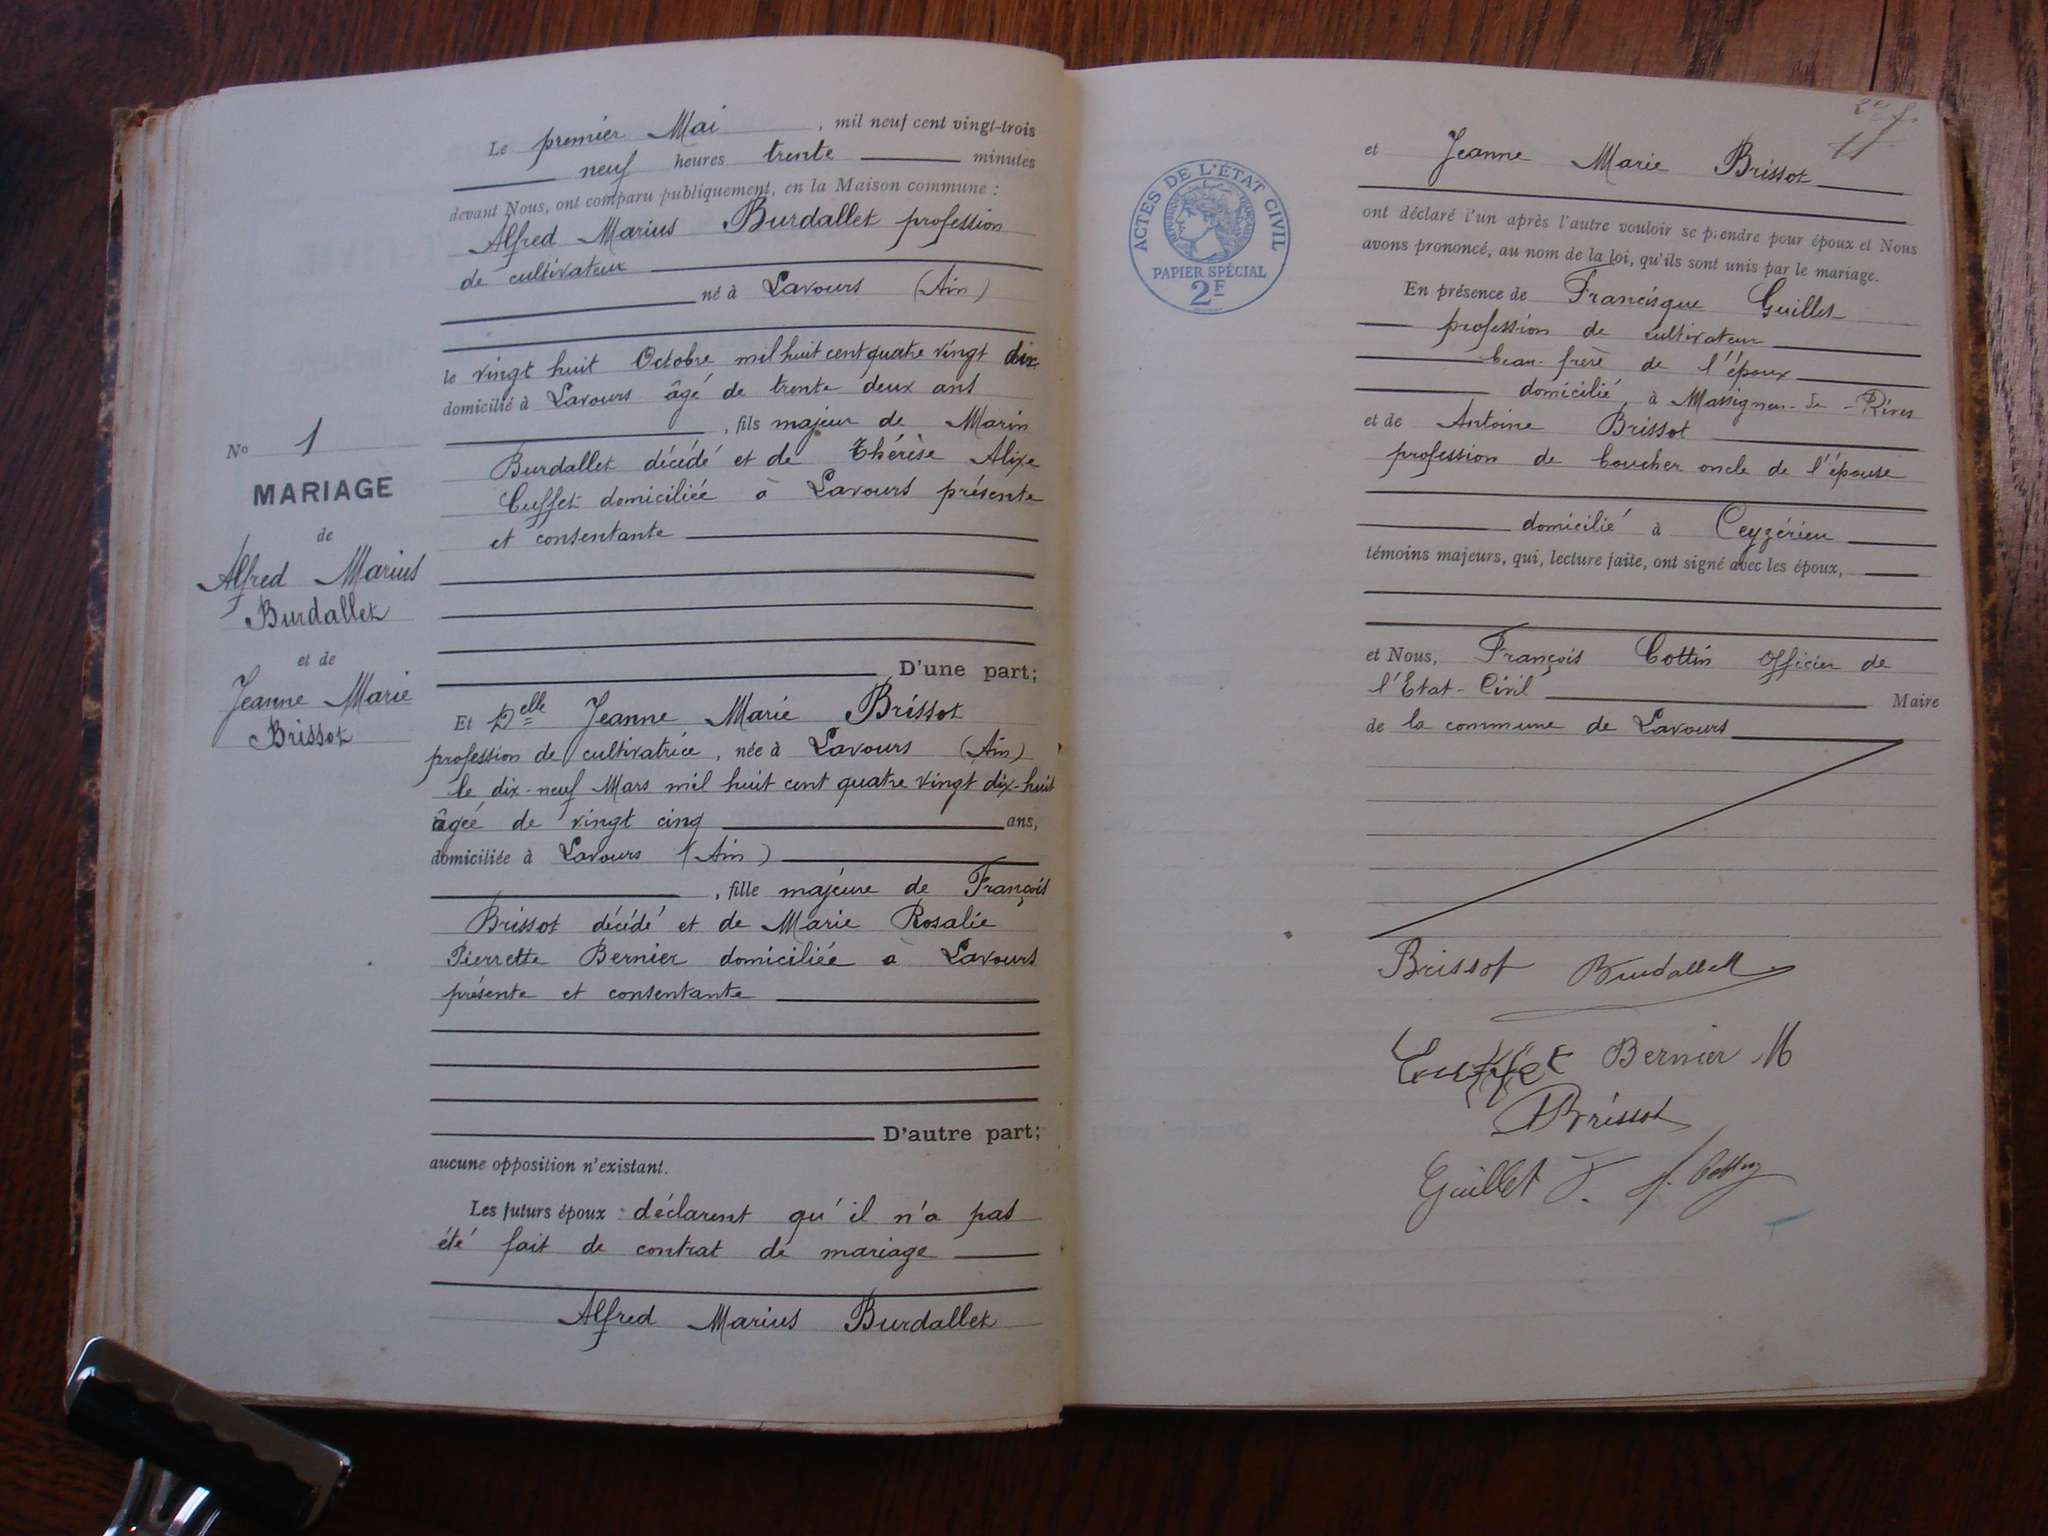 Le premier Mai, mil neuf cent vingt-trois
neuf heures trente minutes
devant Nous, ont comparu publiquement, en la Maison commune :
Alfred Marius Burdallet profession
de cultivateur
né à Lavours (Ain)
le vingt huit Octobre mil huit cent quatre vingt dix
domicilié à Lavours âgé de trente deux ans
, fils majeur de Marin
Burdallet décédé et de Thérèse Alixe
Cuffet domiciliée à Lavours présente
et consentante
D'une part;
No 1
MARIAGE
de
Alfred Marius
Burdallet
et de
Jeanne Marie
Brissot
Et Delle Jeanne Marie Brissot
profession de cultivatrice, née à Lavours (Ain)
le dix-neuf Mars mil huit cent quatre vingt dix-huit
âgée de vingt cinq ans,
domiciliée à Lavours (Ain)
, fille majeure de François
Brissot décédé et de Marie Rosalie
Pierrette Bernier domiciliée à Lavours
présente et consentante
D'autre part;
aucune opposition n'existant.
Les futurs époux déclarent qu'il n'a pas
été fait de contrat de mariage
Alfred Marius Burdallet
ACTES DE L'ÉTAT CIVIL
PAPIER SPÉCIAL
2F
et Jeanne Marie Brissot
ont déclaré l'un après l'autre vouloir se prendre pour époux et Nous
avons prononcé, au nom de la loi, qu'ils sont unis par le mariage.
En présence de Francisque Guillet
profession de cultivateur
beau-frère de l'époux
domicilié à Massignieu-de-Rives
et de Antoine Brissot
profession de boucher oncle de l'épouse
domicilié à Ceyzérieu
témoins majeurs, qui, lecture faite, ont signé avec les époux,
et Nous, François Cottin Officier de
l'Etat-Civil Maire
de la commune de Lavours
Brissot Burdallet
Cuffet Bernier M
ABrissot
Guillet F. f. Cottin